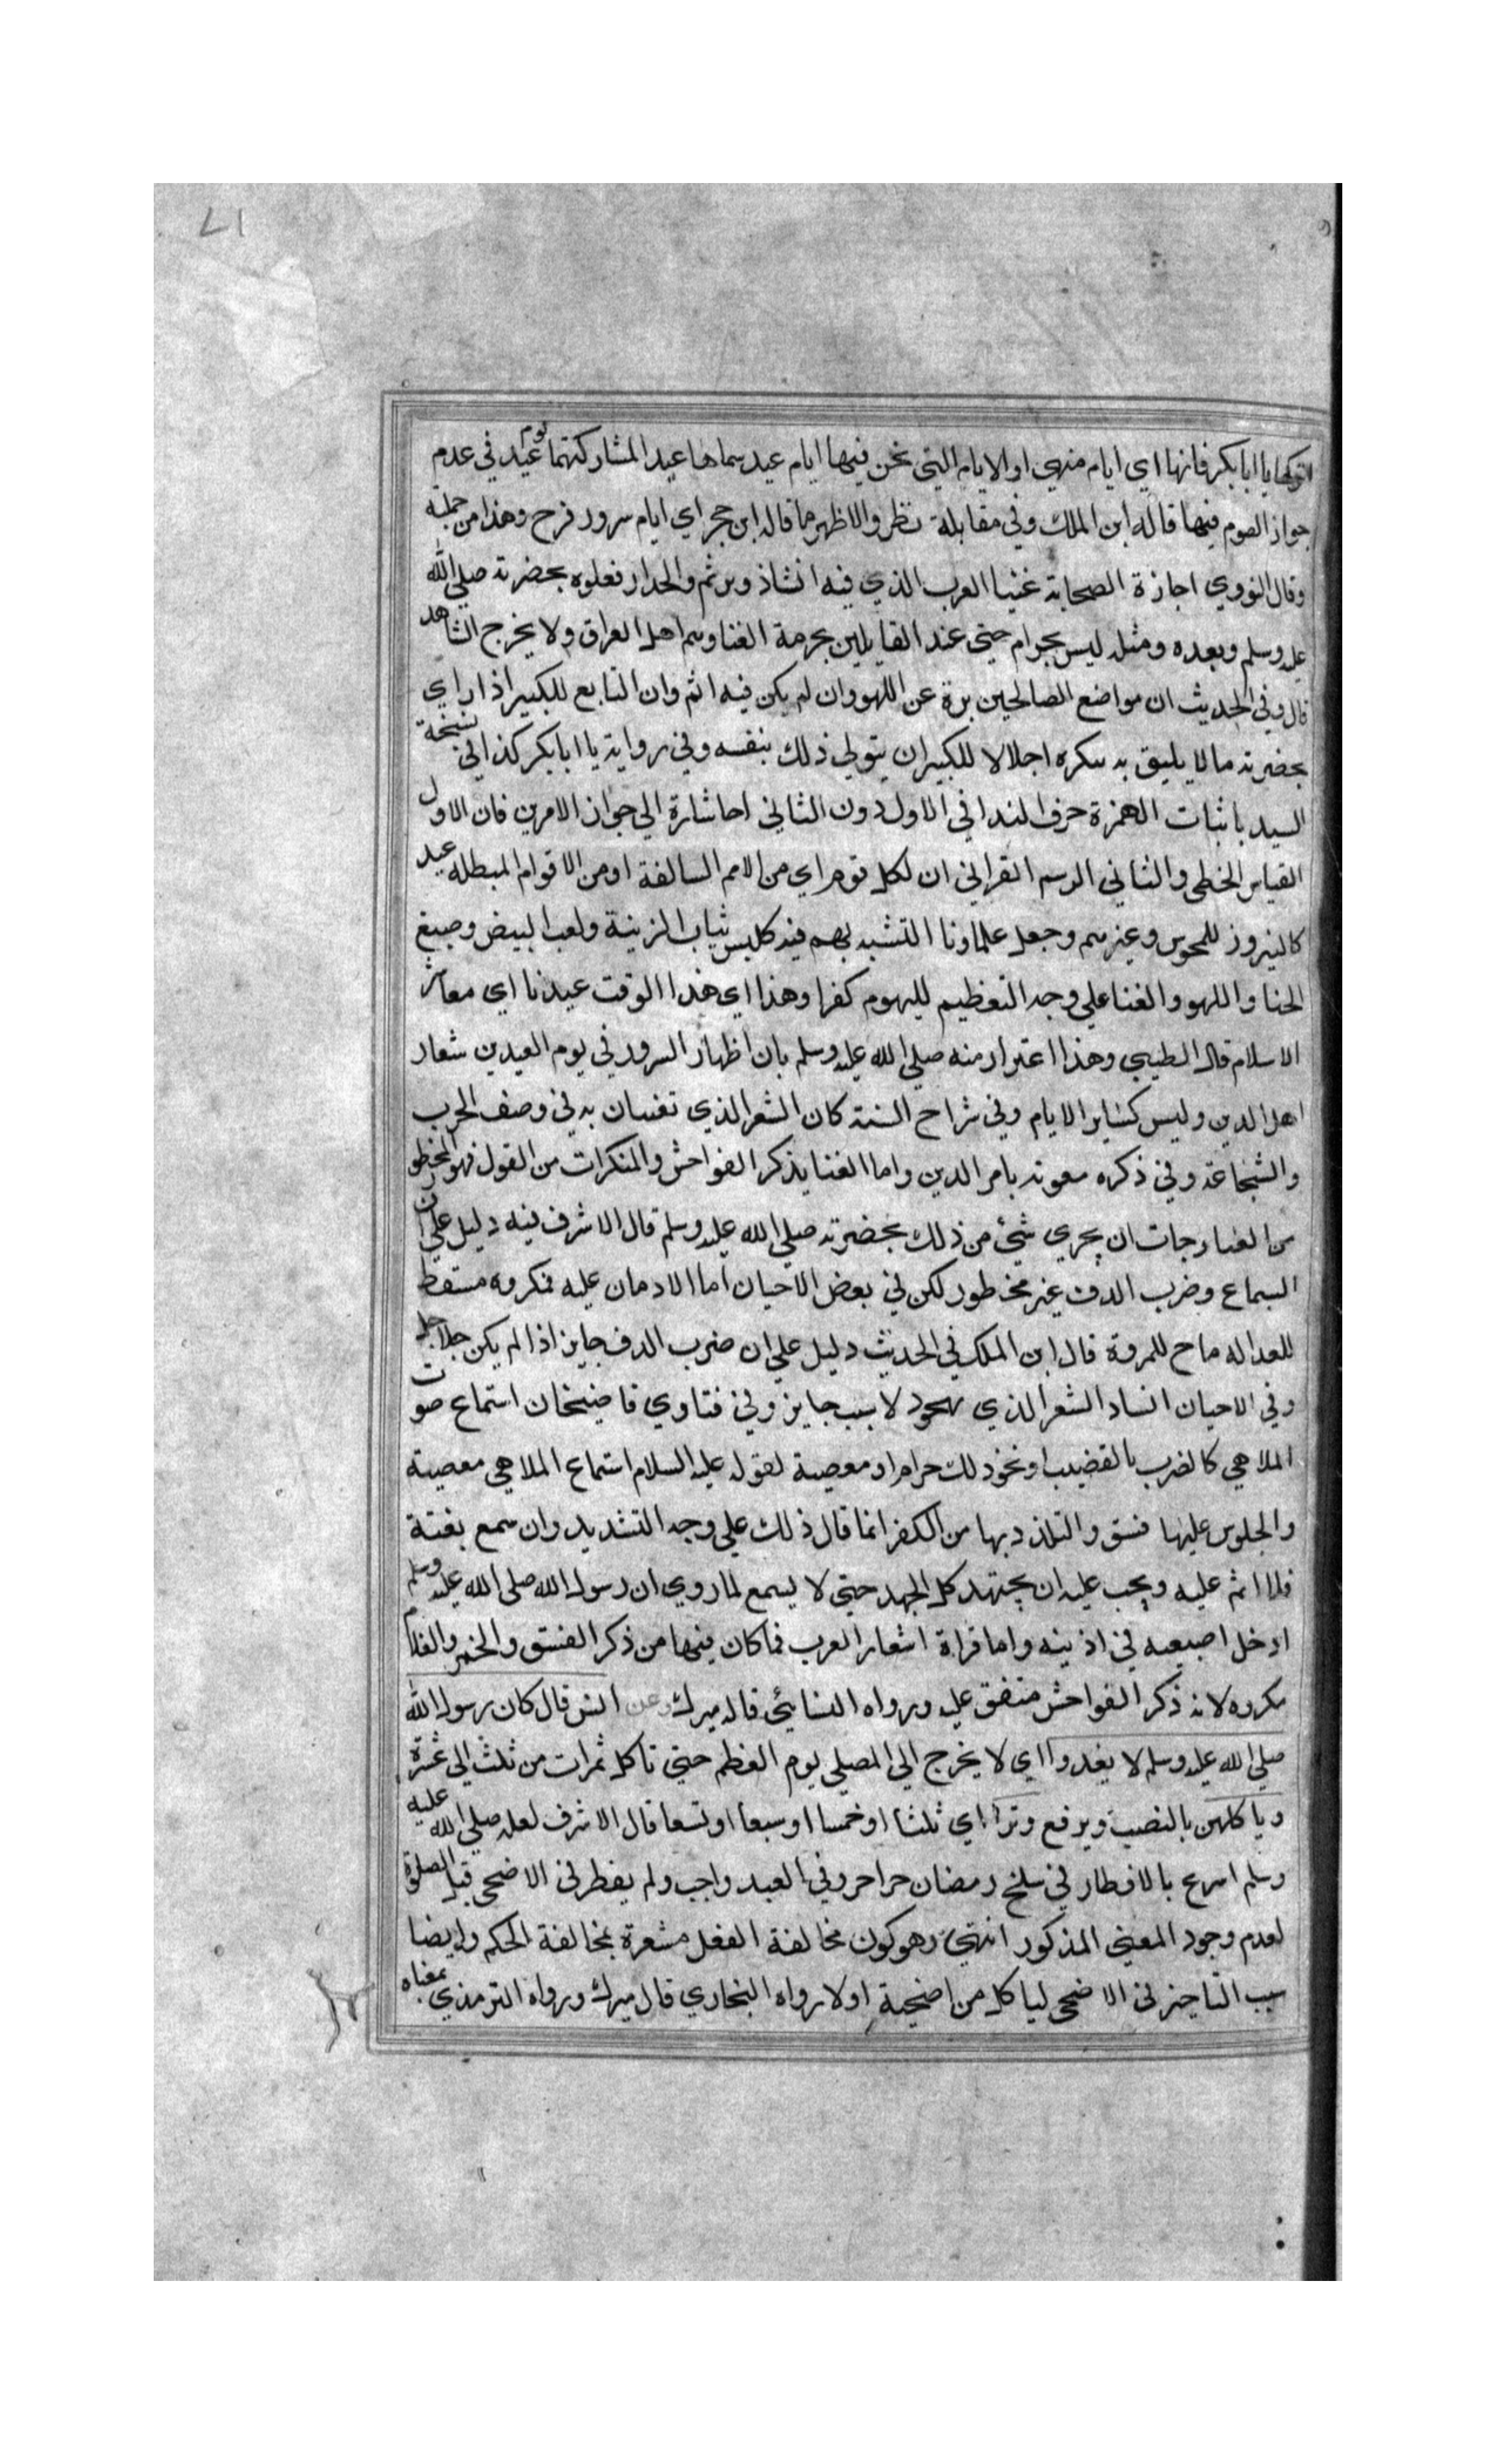 ١٧
اتركها يا ابا بكر فانها اي ايام منهي او الايام التي نحن فيها ايام عيد سماها عيدا لمشاركتها يوم عيد في عدم
جواز الصوم فيها قاله ابن الملك وفي مقابلة نظر والاظهر ما قاله ابن حجر اي ايام سرور فرح وهذا من جملته
وقال النووي اجازة الصحابة غنيا العرب الذي فيه انشاذ وترنم والحدار فعلوه بحضرته صلي الله
عليه وسلم وبعده ومثله ليس بحرام حتي عند القايلين بحرمة الغنا وسم اهل العراق ولا يخرج الشاهد
قال وفي الحديث ان مواضع الصالحين برة عن اللهو وان لم يكن فيه اثم وان التابع للكبير اذا راي
بحضرته ما لا يليق به سكره اجلالا للكبير ان يتولي ذلك بنفسه وفي رواية يا ابا بكر كذا في نسخة
السيد باثبات الهمزة حرف لندا في الاول دون الثاني احا شارة الي جواز الامرين فان الاول
القياس الخطي والثاني الرسم القراني ان لكل قوم اي من الامم السالفة او من الاقوام المبطله عيد
كالنيروز للمجوس وغيرهم وجعل علماونا التشبه بهم فيه كلبس ثياب الزينة ولعب البيض وصبغ
الحنا واللهو والغنا علي وجه التعظيم لليوم كفرا وهذا اي هذا الوقت عيدنا اي معاشر
الاسلام قال الطيبي وهذا اعترار منه صلي الله عليه وسلم بان اظهار السرور في يوم العيدين شعار
اهل الدين وليس كساير الايام وفي شراح السنة كان الشعر الذي تغنيان به في وصف الحرب
والشجاعة وفي ذكره معونه بامر الدين واما الغنا يذكر الفواحش والمنكرات من القول فهو المحظور
من الغنا وحات ان يجري شئ من ذلك بحضرته صلي الله عليه وسلم قال الاشرف فيه دليل علي ان
السماع وضرب الدف غير محظور لكن في بعض الاحيان اما الادمان عليه فمكروه مسقط
للعداله ماح للمروة قال ابن الملك في الحديث دليل علي ان ضرب الدف جايز اذا لم يكن جلاجل
وفي الاحيان انساد الشعر الذي بهجود لا سبب جايز وفي فتاوي قاضيخان استماع صوت
الملاهي كالضرب بالقضيب او نحو ذلك حرام او معصية لقوله عليه السلام استماع الملاهي معصية
والجلوس عليها فسق والتلذذ بها من الكفر انما قال ذلك علي وجه التشديد وان سمع بغتة
فلا اثم عليه ويجب عليه ان يجتهد كل الجهد حتي لا يسمع لما روي ان رسول الله صلي الله عليه وسلم
ادخل اصبعيه في اذنيه واما قراة اشعار العرب فما كان فيها من ذكر الفسق والخمر والغلام
مكروه لانه ذكر الفواحش متفق عليه ورواه النسائي قاله ميرك وعن انس قال كان رسول الله
صلي الله عليه وسلم لا يغدوا اي لا يخرج الي المصلي يوم الفطم حتي تاكل ثمرات من ثلث الي عشرة
وياكلهن بالنصب ويرفع وترا اي ثلثا او خمسا او سبعا او تسعا قال الاشرف لعله صلي الله عليه
وسلم اسرع بالافطار في سلخ رمضان حراحر وفي العيد واجب ولم يفطر في الاضحي قبل الصلوة
لعدم وجود المعني المذكور انتهي وهو كون مخالفة الفعل مشعرة بمخالفة الحكم وايضا
سبب التاخير في الاضحي لياكل من اضحية اولا رواه البخاري قال ميرك ورواه الترمذي بمعناه